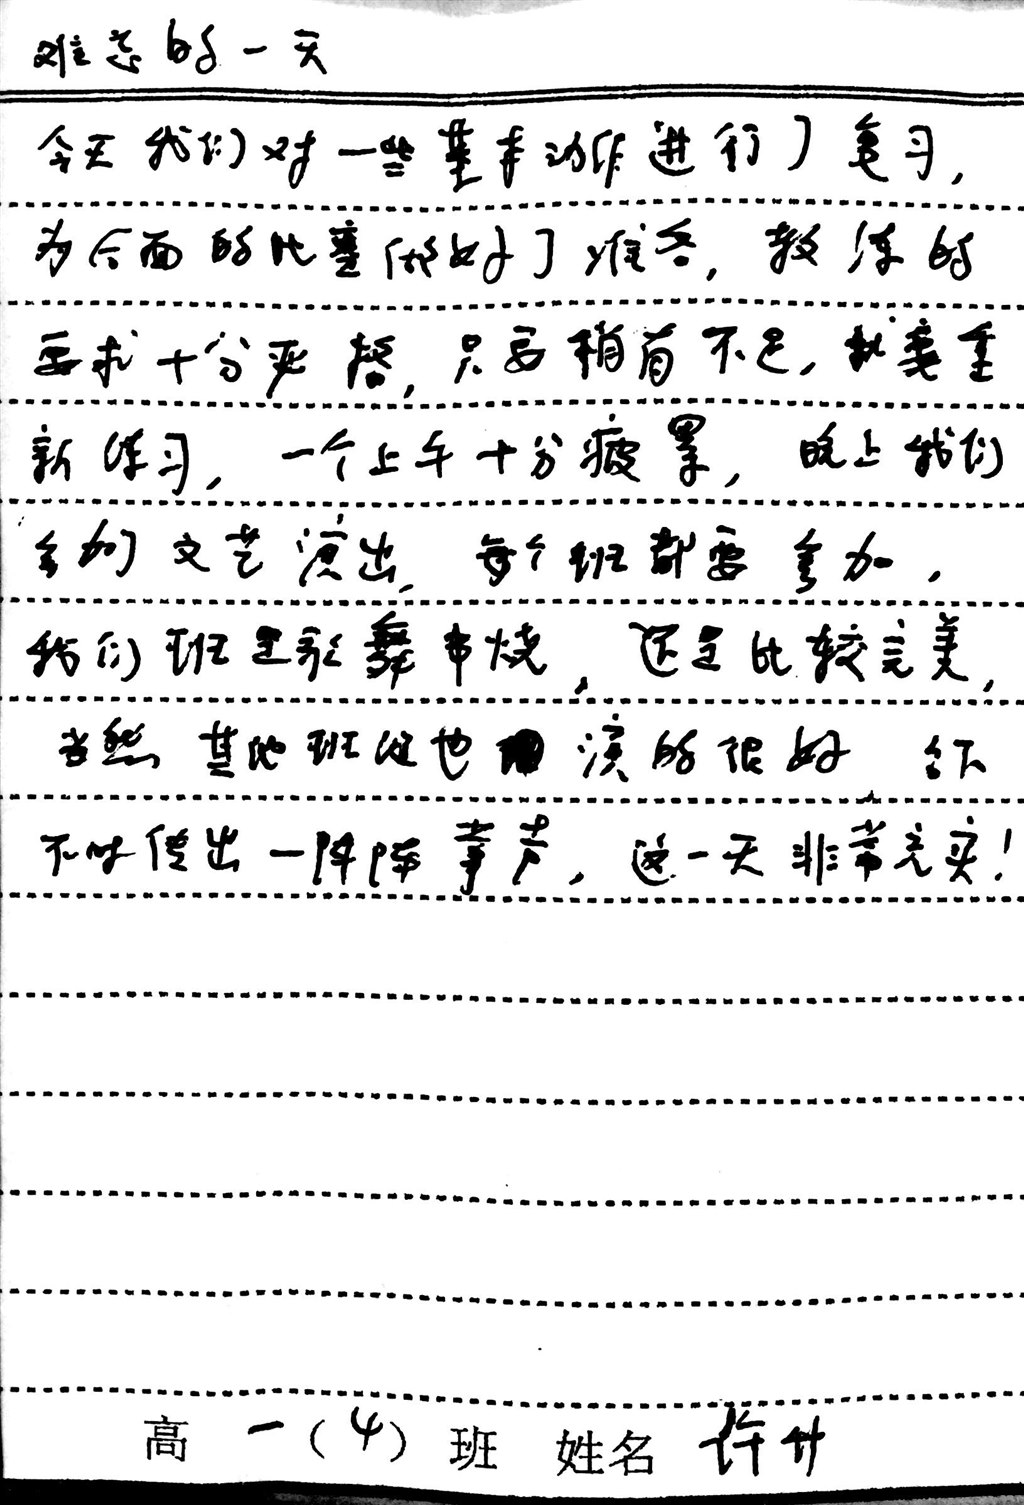 难忘的一天
今天我们对一些基本动作进行了复习,
为后面的比赛做好了准备,教练的
要求十分严格,只要稍有不足,就要重
新练习,一个上午十分疲累,晚上我们
参加了文艺演出,每个班都要参加,
我们班是歌舞串烧,还是比较完美,
当然其他班级也演的很好 台下
不时传出一阵阵掌声,这一天非常充实!
高一(4)班 姓名 许升